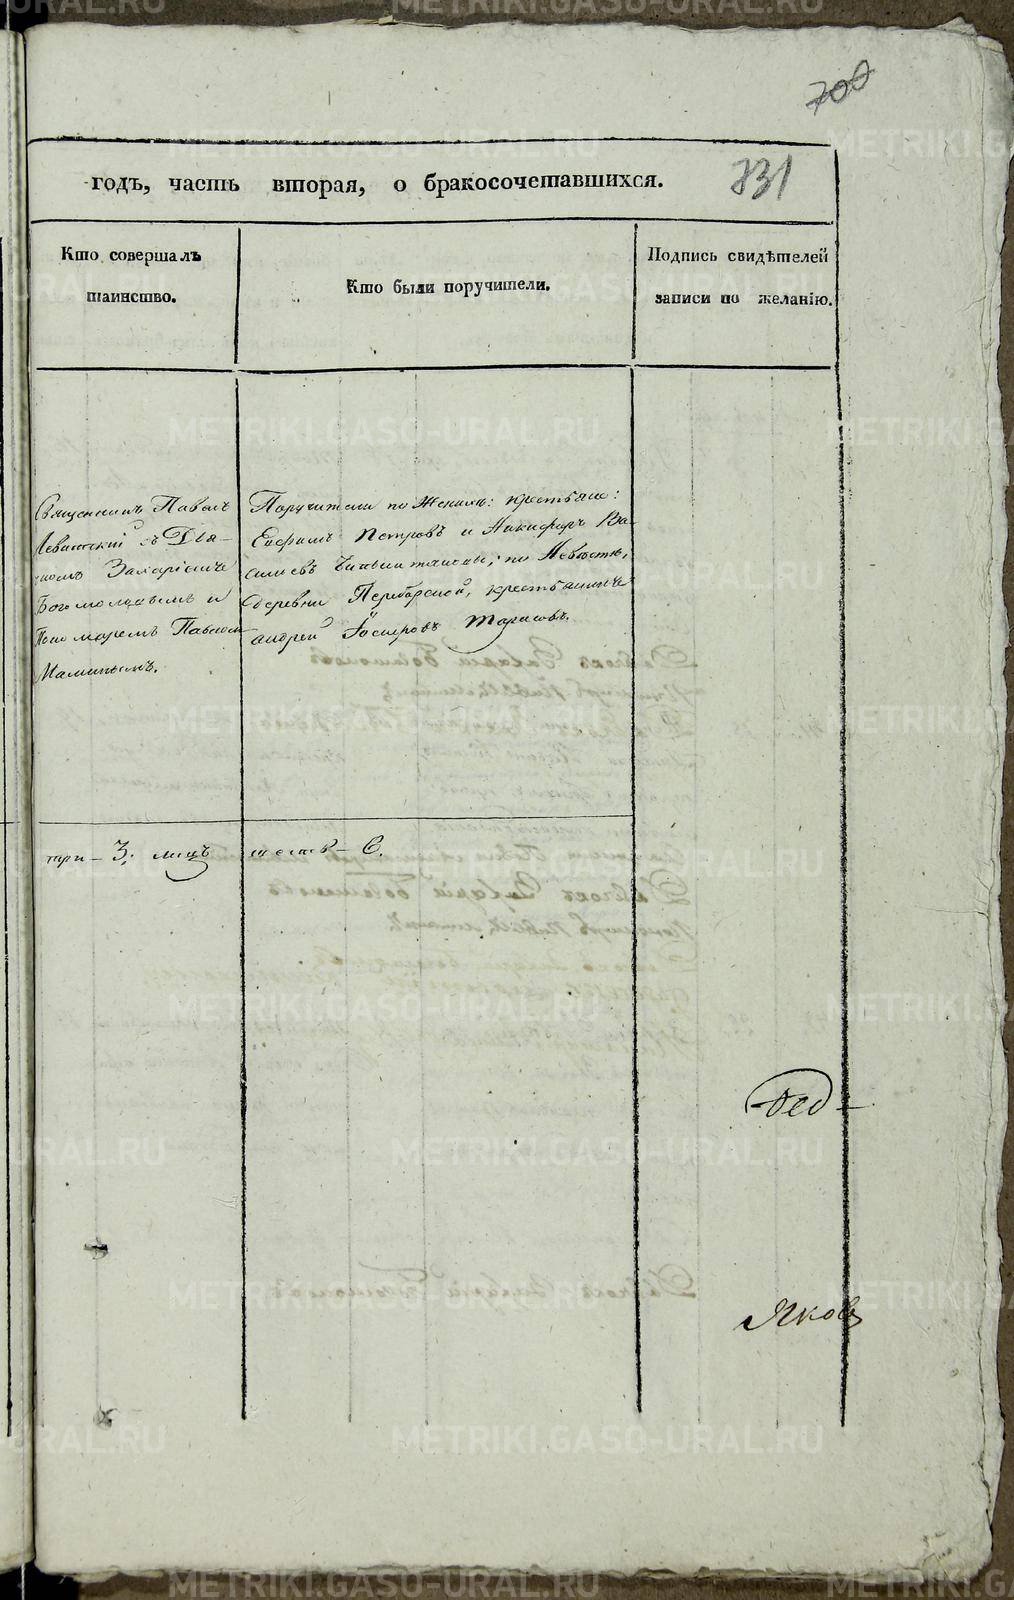 700
331
годъ, часть вторая, о бракосочетавшихся.
Кто совершалъ
таинство.
Кто были поручители.
Подпись свидѣтелей
записи по желанію.
Священникъ Павелъ
Левитский съ Дья-
комъ Захаріемъ
Богомоловымъ и
Пономаремъ Павломъ
Маминымъ.
Поручители по Женихѣ: крестьяне:
Евфимъ Петровъ и Никифоръ Ва-
сильевъ; по Невѣстѣ,
деревни Переборской, крестьянинъ
андрей Тарасовъ.
три - 3; лицъ
шесть - 6.
Дес
Яков
METRIKI.GASO-URAL.RU